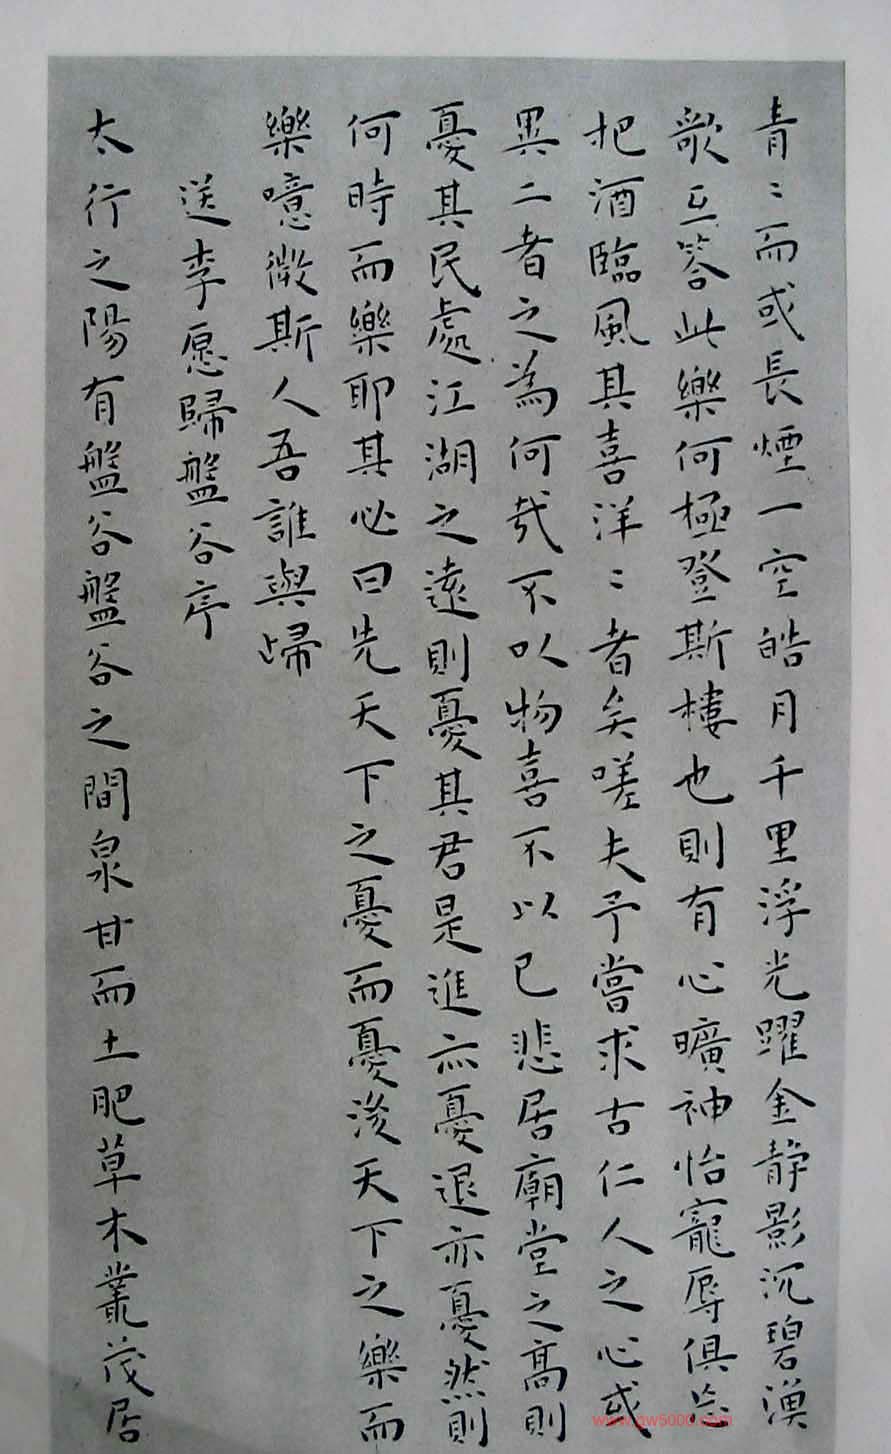 青〻而或長煙一空皓月千里浮光躍金静影沉碧漁
歌互答此樂何極登斯樓也則有心曠神怡寵辱俱忘
把酒臨風其喜洋〻者矣嗟夫予嘗求古仁人之心或
異二者之為何哉不以物喜不以己悲居廟堂之高則
憂其民處江湖之遠則憂其君是進亦憂退亦憂然則
何時而樂耶其必曰先天下之憂而憂後天下之樂而
樂噫微斯人吾誰與歸
送李愿歸盤谷序
太行之陽有盤谷盤谷之間泉甘而土肥草木叢茂居
www.gw5000.com